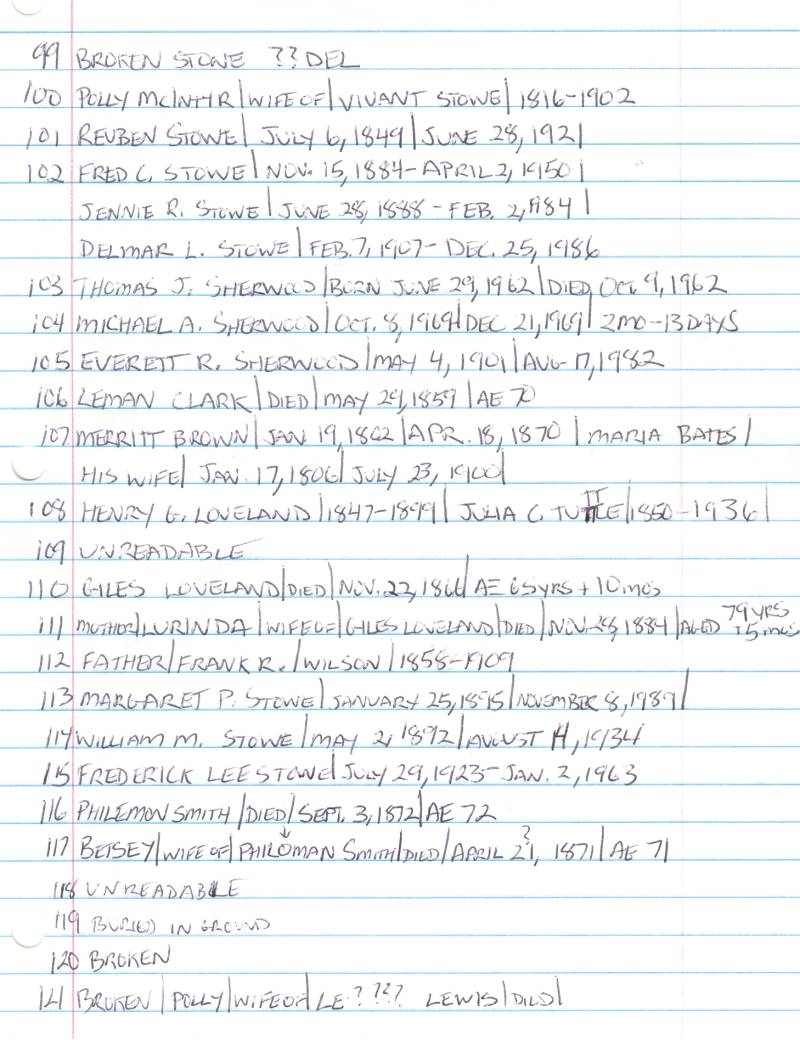 99 BROKEN STONE ?? DEL
100 POLLY MCINTYR | WIFE OF | VIVANT STOWE | 1816-1902
101 REUBEN STOWE | JULY 6, 1849 | JUNE 28, 1921
102 FRED C. STOWE | NOV. 15, 1884 - APRIL 2, 1950 |
JENNIE R. STOWE | JUNE 28, 1888 - FEB. 2, 1984 |
DELMAR L. STOWE | FEB. 7, 1907 - DEC. 25, 1986
103 THOMAS J. SHERWOOD | BORN JUNE 29, 1962 | DIED OCT. 9, 1962
104 MICHAEL A. SHERWOOD | OCT. 8, 1969 | DEC 21, 1969 | 2MO-13DAYS
105 EVERETT R. SHERWOOD | MAY 4, 1901 | AUG 17, 1982
106 LEMAN CLARK | DIED | MAY 29, 1859 | AE 70
107 MERRITT BROWN | JAN 19, 1802 | APR. 18, 1870 | MARIA BATES |
HIS WIFE | JAN. 17, 1806 | JULY 23, 1900 |
108 HENRY G. LOVELAND | 1847-1899 | JULIA C. TUTTLE | 1850-1936 |
109 UNREADABLE
110 GILES LOVELAND | DIED | NOV. 22, 1866 | AE 65yrs + 10 mos
111 MOTHER | LURINDA | WIFE OF | GILES LOVELAND | DIED | NOV. 28, 1884 | AGED 79 YRS + 5 mos
112 FATHER | FRANK R. | WILSON | 1858-1909
113 MARGARET P. STOWE | JANUARY 25, 1895 | NOVEMBER 8, 1989 |
114 WILLIAM M. STOWE | MAY 2, 1892 | AUGUST 14, 1934
115 FREDERICK LEE STOWE | JULY 29, 1923 - JAN. 2, 1963
116 PHILEMON SMITH | DIED | SEPT. 3, 1872 | AE 72
117 BETSEY | WIFE OF | PHILOMAN SMITH | DIED | APRIL 21, ? 1871 | AE 71
118 UNREADABLE
119 BURIED IN GROUND
120 BROKEN
121 BROKEN | POLLY | WIFE OF | LE???? LEWIS | DIED |